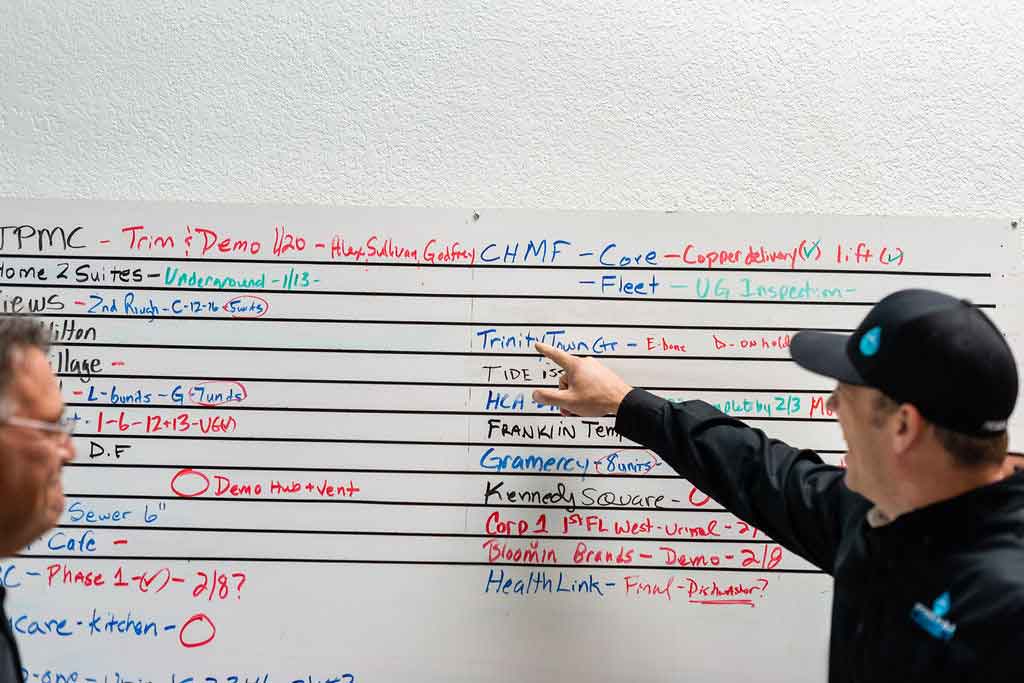 JPMC - Trim & Demo 1/20 - Alex, Sullivan, Godfrey
Home 2 Suites - Underground - 1/13 -
- 2nd Rough - C-12-16 5units
Hilton
- L-6units - G 7units
1-6-12+13-UG(✓)
D.F
Demo Hub + Vent
Sewer 6"
Cafe -
- Phase 1 - (✓) - 2/8?
care - kitchen -
CHMF - Core - Copper delivery (✓) lift (✓)
- Fleet - UG Inspection -
Trinity Town Ctr - E-bone D-on hold
TIDE
HCA by 2/3
FRANKLIN
Gramercy - 8units -
Kennedy Square -
Corp 1 1st FL West - Urinal -
Bloomin Brands - Demo - 2/8
HealthLink - Final - Dishwasher?